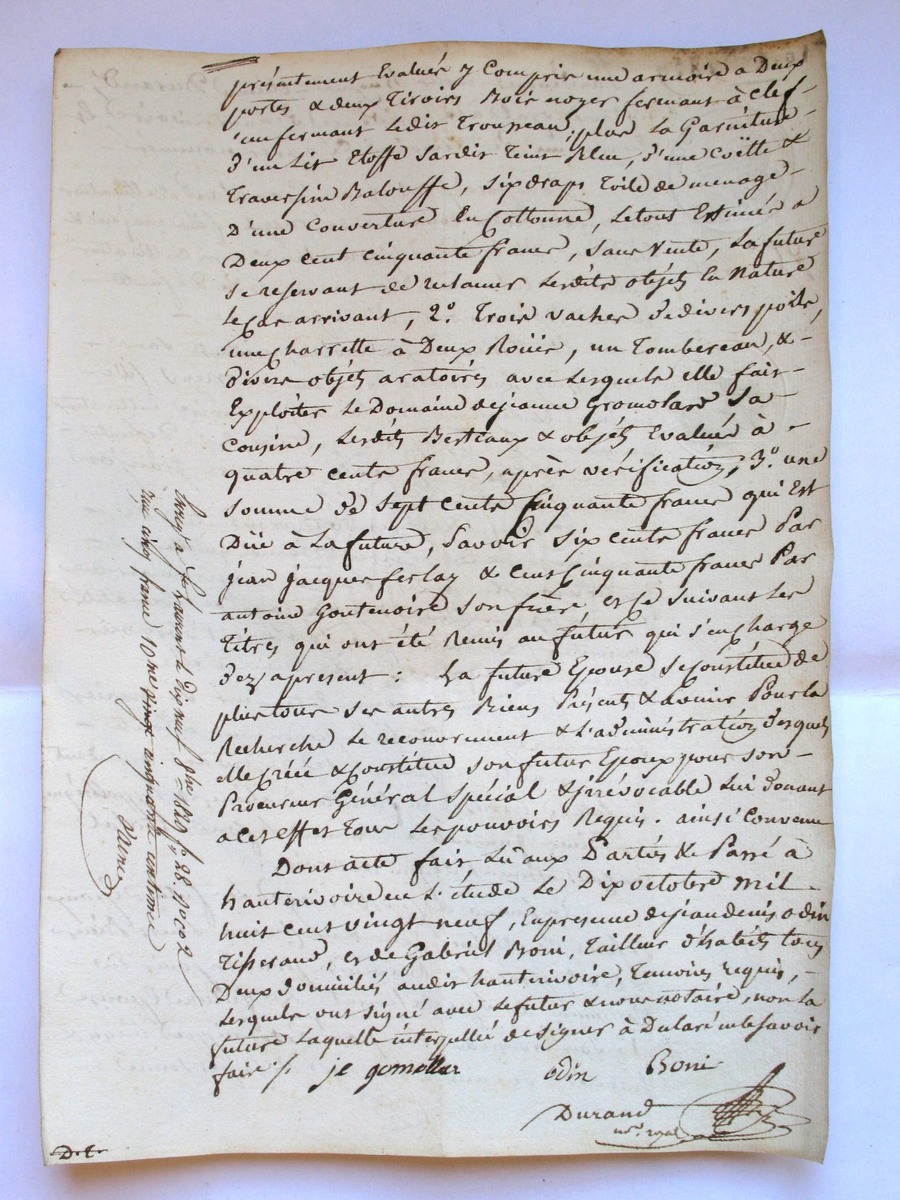 présentement Evalués y Compris une armoire a Deux
portes & deux Tiroirs Bois noyer fermant à clef
enfermant Ledit Trousseau, plus La Garniture
d'un Lit Etoffe Cardis Teint Bleu, d'une Coëtte &
Traversin Balouffe, six draps Toile de menage
D'une Couverture En Cottonne, Le tous Estimés a
Deux cent cinquante francs, sans Vente, La future
se reservant de reclamer Lesdits objets En Nature
Le Cas arrivant, 2.° Trois vaches de divers poils,
une Charrette à Deux Roües, un Tombereau, &
divers objets aratoires avec Lesquels elle fait
Exploiter Le Domaine de jeanne Gromolard Sa
Cousine, Lesdits Bestiaux & objets Evalués à
quatre cents francs, après vérification; 3.° une
somme de Sept Cents Cinquante francs qui Est
Düe à La future, Savoir Six cents francs Par
jean jacques ferlay & Cent Cinquante francs Par
antoine Goutenoire son frère, et Ce suivant Les
Titres qui ont été Remis au futur qui s'en charge
dez apresent : La future Epouse Se Constitue de
plus tous ses autres Biens Présents & avenir Pour la
Recherche Le recouvrement & L'administration desquels
elle Créé & Constitue son futur Epoux pour son
Procureur Général Spécial & irrévocable Lui donant
a Cet effet tous Les pouvoirs Requis. ainsi Convenu
Dont acte fait Lu aux Parties & Passé à
hauterivoire en L'étude Le Dix octobre mil
huit cent vingt neuf, En presence de jean denis odin
Tisserand, et de Gabriel Boni, Tailleur d'habits tous
Deux domiciliés audit hauterivoire, Temoins requis,
Lesquels ont signé avec Le futur & nous notaire, non La
future Laquelle interpellée de signer à Déclaré ne le savoir
faire /. je odin Boni
Durand
not. royal
Enreg. a St Laurent le dix neuf 8bre 1829 f° 28
reçu cinq francs 10me cinquante centimes
D. L.